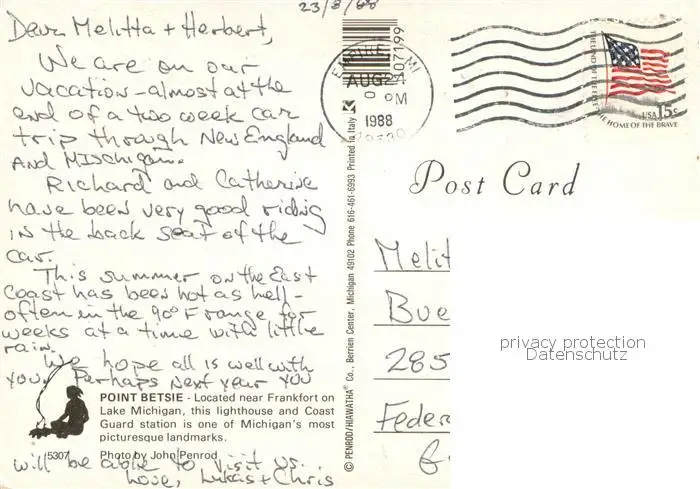 23/8/88
Dear Melitta + Herbert,
We are on our
vacation - almost at the
end of a two week car
trip through New England
and Mischigan.
Richard and Catherine
have been very good riding
in the back seat of the
car.
This summer on the East
Coast has been hot as hell -
often in the 90° F range for
weeks at a time with little
rain.
We hope all is well with
you. Perhaps next year you
POINT BETSIE - Located near Frankfort on
Lake Michigan, this lighthouse and Coast
Guard station is one of Michigan's most
picturesque landmarks.
5307 Photo by John Penrod
will be able to visit us...
Love, Lukas + Chris
© PENROD/HIAWATHA® Co., Berrien Center, Michigan 49102 Phone 616-461-6993 Printed in Italy
07199
EMPIRE, MI
AUG 24
PM
1988
THE LAND OF THE FREE
THE HOME OF THE BRAVE
USA 15c
Post Card
Melit
Bue
285
Feder
privacy protection
Datenschutz